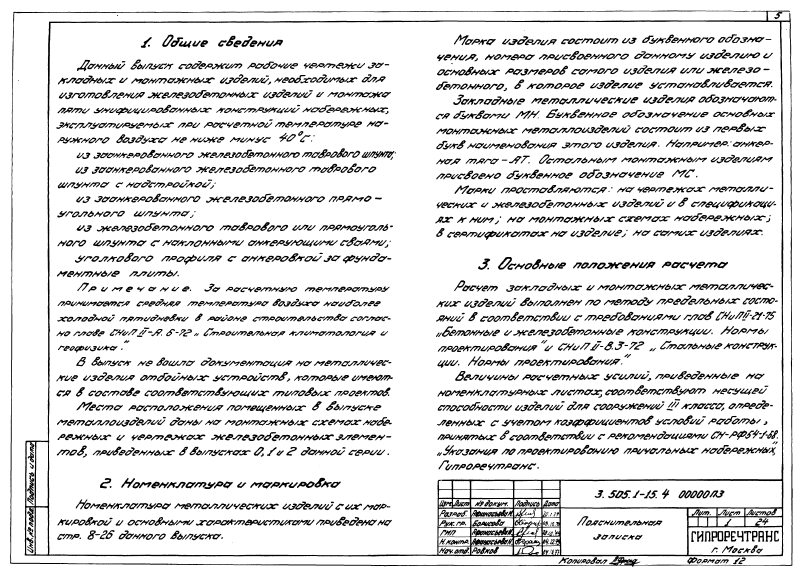 5
1. Общие сведения
Данный выпуск содержит рабочие чертежи за-
кладных и монтажных изделий, необходимых для
изготовления железобетонных изделий и монтажа
пяти унифицированных конструкций набережных,
эксплуатируемых при расчетной температуре на-
ружного воздуха не ниже минус 40°С:
из заанкерованного железобетонного таврового шпунта;
из заанкерованного железобетонного таврового
шпунта с надстройкой;
из заанкерованного железобетонного прямо-
угольного шпунта;
из железобетонного таврового или прямоуголь-
ного шпунта с наклонными анкерующими сваями;
уголкового профиля с анкеровкой за фунда-
ментные плиты.
Примечание. За расчетную температуру
принимается средняя температура воздуха наиболее
холодной пятидневки в районе строительства соглас-
но главе СНиП II-А. 6-72 „Строительная климатология и
геофизика."
В выпуск не вошла документация на металличес-
кие изделия отбойных устройств, которые имеют-
ся в составе соответствующих типовых проектов.
Места расположения помещенных в выпуске
металлоизделий даны на монтажных схемах набе-
режных и чертежах железобетонных элемен-
тов, приведенных в выпусках 0,1 и 2 данной серии.
2. Номенклатура и маркировка
Номенклатура металлических изделий с их мар-
кировкой и основными характеристиками приведена на
стр. 8-26 данного выпуска.
Марка изделия состоит из буквенного обозна-
чения, номера присвоенного данному изделию и
основных размеров самого изделия или железо-
бетонного, в которое изделие устанавливается.
Закладные металлические изделия обозначают-
ся буквами МН. Буквенное обозначение основных
монтажных металлоизделий состоит из первых
букв наименования этого изделия. Например: анкер-
ная тяга-АТ. Остальным монтажным изделиям
присвоено буквенное обозначение МС.
Марки проставляются: на чертежах металли-
ческих и железобетонных изделий и в спецификаци-
ях к ним; на монтажных схемах набережных;
в сертификатах на изделие; на самих изделиях.
3. Основные положения расчета
Расчет закладных и монтажных металличес-
ких изделий выполнен по методу предельных состо-
яний в соответствии с требованиями глав СНиП II-21-75
„Бетонные и железобетонные конструкции. Нормы
проектирования" и СНиП II-В.3-72 „Стальные конструк-
ции. Нормы проектирования."
Величины расчетных усилий, приведенные на
номенклатурных листах, соответствуют несущей
способности изделий для сооружений III класса, опреде-
ленных с учетом коэффициентов условий работы,
принятых в соответствии с рекомендациями СН-РФ54-1-68.
„Указания по проектированию причальных набережных,
Гипроречтранс.
Инв.№ подл. Подпись и дата
3.505.1-15.4 00000ПЗ
Изм. Лист № докум. Подпись Дата
Разраб. Афанасьева Н.
Рук. гр. Борисова
ГИП Афанасьева Н.
Н. контр. Афанасьева Н.
Нач. отд. Ровков
Пояснительная
записка
Лит. Лист Листов
1 24
ГИПРОРЕЧТРАНС
г. Москва
Копировал Формат 12